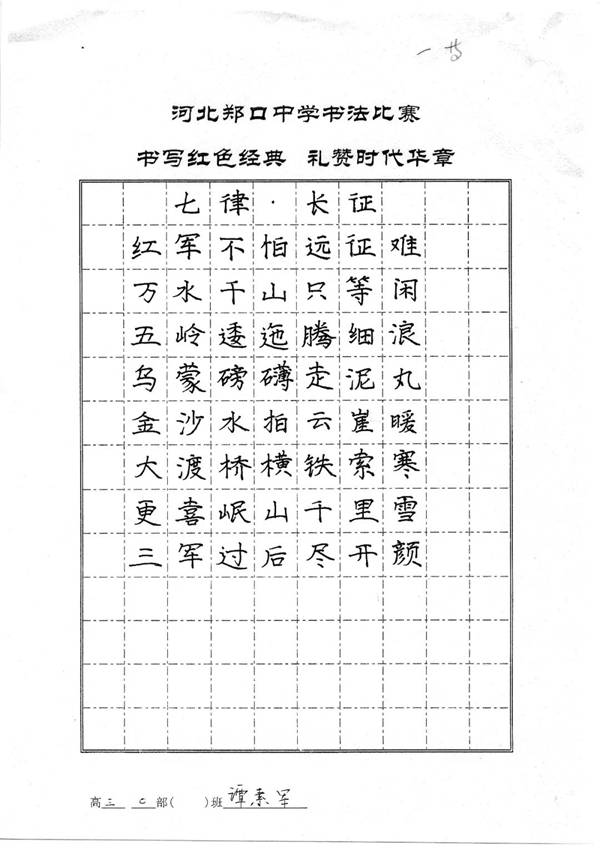 河北郑口中学书法比赛
书写红色经典 礼赞时代华章
七律·长征
红军不怕远征难
万水千山只等闲
五岭逶迤腾细浪
乌蒙磅礴走泥丸
金沙水拍云崖暖
大渡桥横铁索寒
更喜岷山千里雪
三军过后尽开颜
高三 C部( )班 谭素军